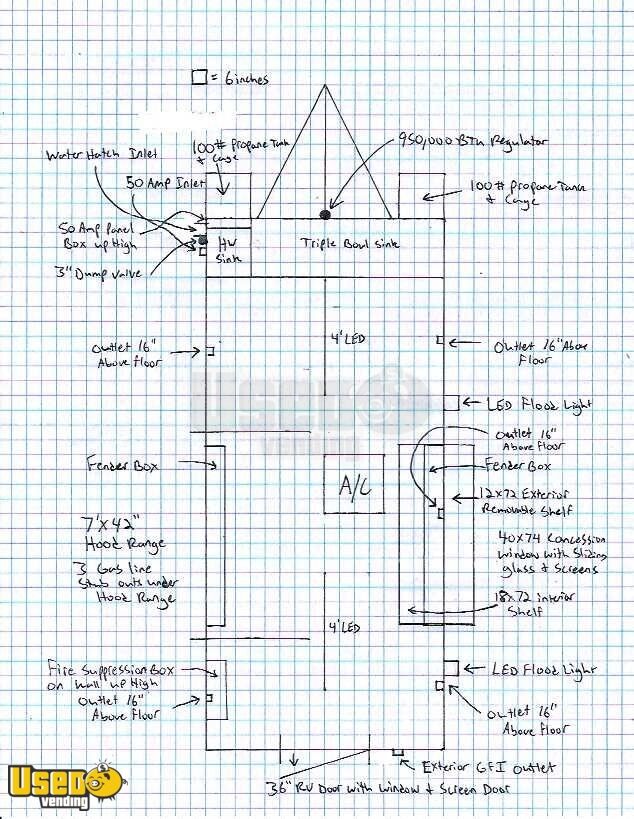 = 6 inches
Water Hatch Inlet
100# Propane Tank
& Cage
950,000 BTU Regulator
50 Amp Inlet
100# Propane Tank
& Cage
50 Amp Panel
Box up High
HW
Sink
Triple Bowl Sink
3" Dump Valve
4' LED
Outlet 16"
Above floor
Outlet 16" Above
Floor
Used
vending
LED Flood Light
Outlet 16"
Above Floor
Fender Box
Fender Box
A/C
12x72 Exterior
Removable Shelf
7'x42"
Hood Range
40x74 Concession
window with Sliding
glass & Screens
3 Gas line
Stub outs under
Hood Range
18x72 interior
Shelf
4' LED
Fire Suppression Box
on wall up High
LED Flood Light
Outlet 16"
Above Floor
Outlet 16"
Above Floor
Exterior GFI Outlet
36" RV Door with window & Screen Door
Used
vending